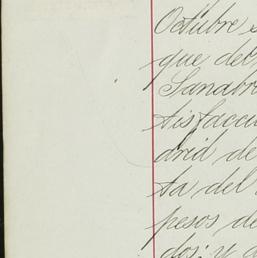 Octubre
que del
Sanabri
tisfacci
drid de
ta del
pesos de
dos; y